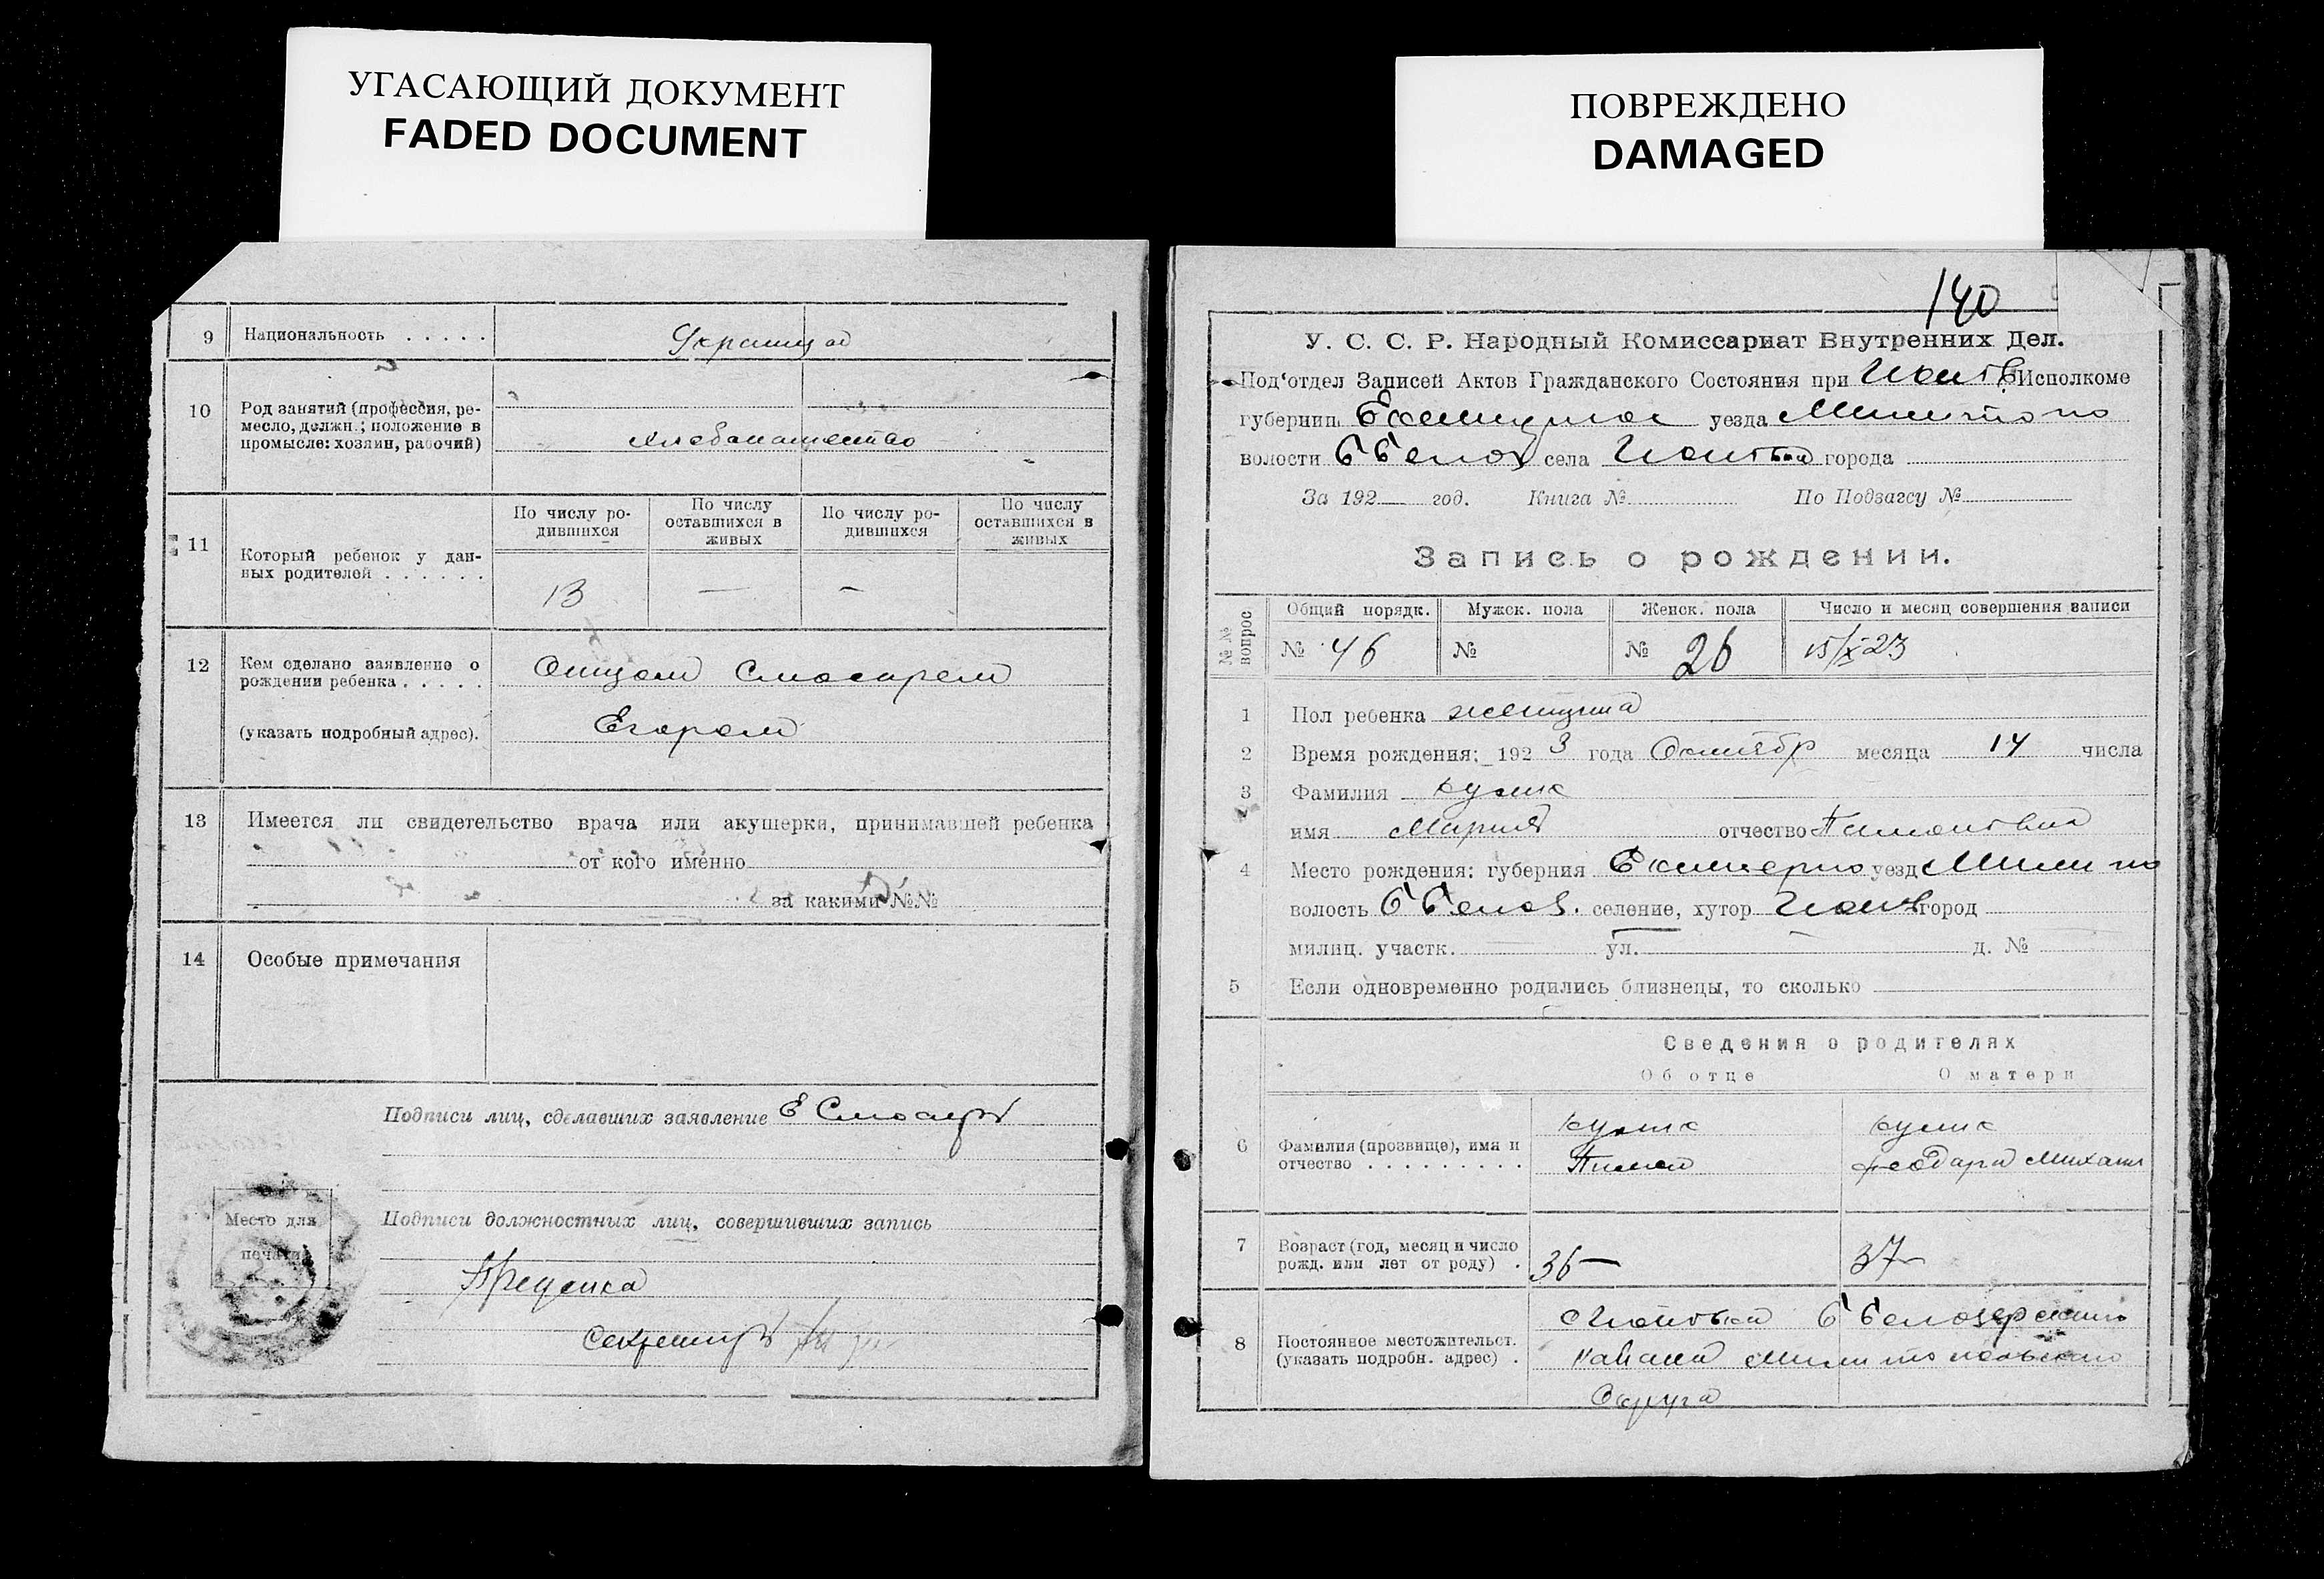 УГАСАЮЩИЙ ДОКУМЕНТ
FADED DOCUMENT
9 Национальность . . . . . Украинцы
10 Род занятий (профессия, ре-
месло, должн.; положение в
промысле: хозяин, рабочий)
хлебопашество
11 Который ребенок у дан-
ных родителей . . . . . .
По числу ро-
дившихся
По числу
оставшихся в
живых
По числу ро-
дившихся
По числу
оставшихся в
живых
13 — —
12 Кем сделано заявление о
рождении ребенка . . . . .
(указать подробный адрес).
Отцом Слюсарем
Егором
13 Имеется ли свидетельство врача или акушерки, принимавшей ребенка
от кого именно
за какими №№
14 Особые примечания
Подписи лиц, сделавших заявление Е Слюсарь
Подписи должностных лиц, совершивших запись
Место для
печати
Секретарь
ПОВРЕЖДЕНО
DAMAGED
140
У. С. С. Р. Народный Комиссариат Внутренних Дел.
Под'отдел Записей Актов Гражданского Состояния при Исполкоме
губернии уезда
волости села города
За 192 год. Книга № По Подзагсу №
Запись о рождении.
№ № вопрос
Общий порядк. Мужск. пола Женск. пола Число и месяц совершения записи
№ 46 № № 26 15/X 23
1 Пол ребенка женщина
2 Время рождения: 192 3 года Октябр месяца 14 числа
3 Фамилия Кулик
имя Мария отчество Пимоновна
4 Место рождения: губерния уезд
волость селение, хутор город
милиц. участк. ул. д. №
5 Если одновременно родились близнецы, то сколько
Сведения о родителях
Об отце О матери
6 Фамилия (прозвище), имя и
отчество . . . . . . . . .
Кулик
Пимон
Кулик
Феодора Михаил
7 Возраст (год, месяц и число
рожд. или лет от роду) .
36— 37—
8 Постоянное местожительст.
(указать подробн. адрес) .
Б Белозерского
Мелитопольского
Округа